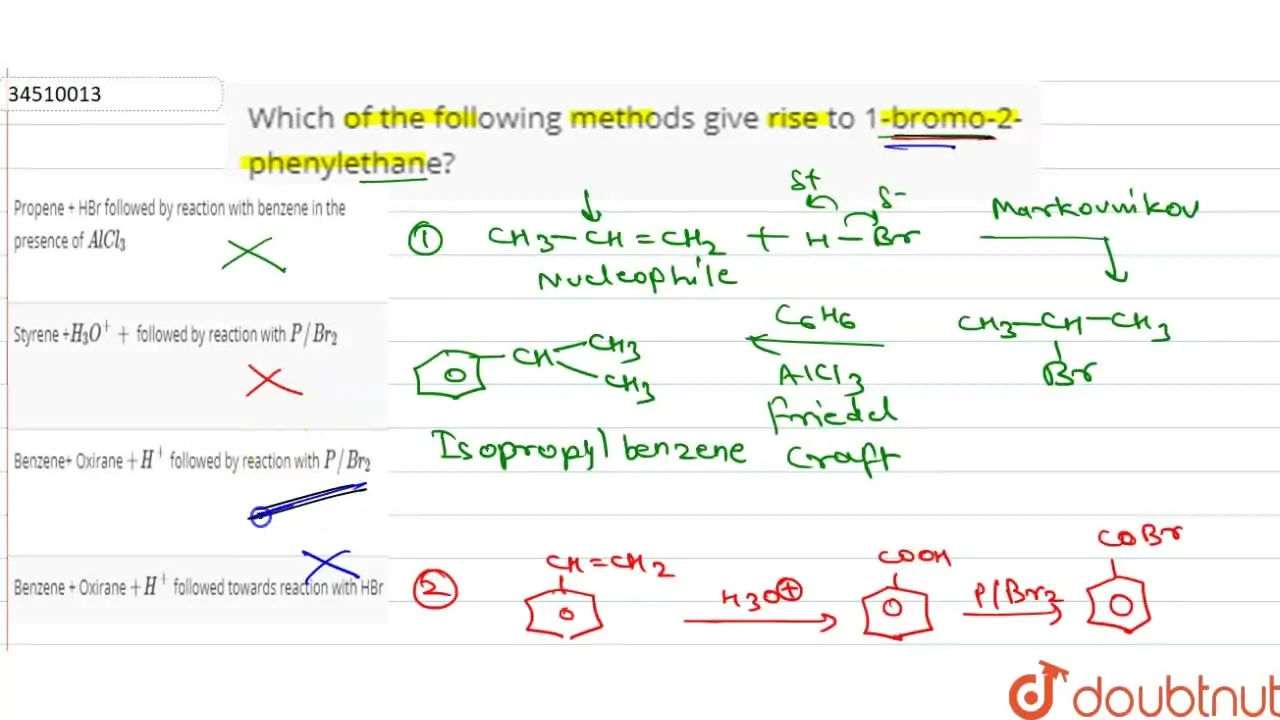 34510013
Which of the following methods give rise to 1-bromo-2-
phenylethane?
Propene + HBr followed by reaction with benzene in the
presence of AlCl3
Styrene +H3O+ + followed by reaction with P/Br2
Benzene+ Oxirane +H+ followed by reaction with P/Br2
Benzene + Oxirane +H+ followed towards reaction with HBr
① CH3-CH=CH2 + H-Br Markovnikov
δ+ δ-
Nucleophile
CH3-CH-CH3
Br
C6H6
AlCl3
Friedel
Craft
CH CH3
CH3
Isopropyl benzene
② CH=CH2 H3O+ COOH P/Br2 COBr
doubtnut